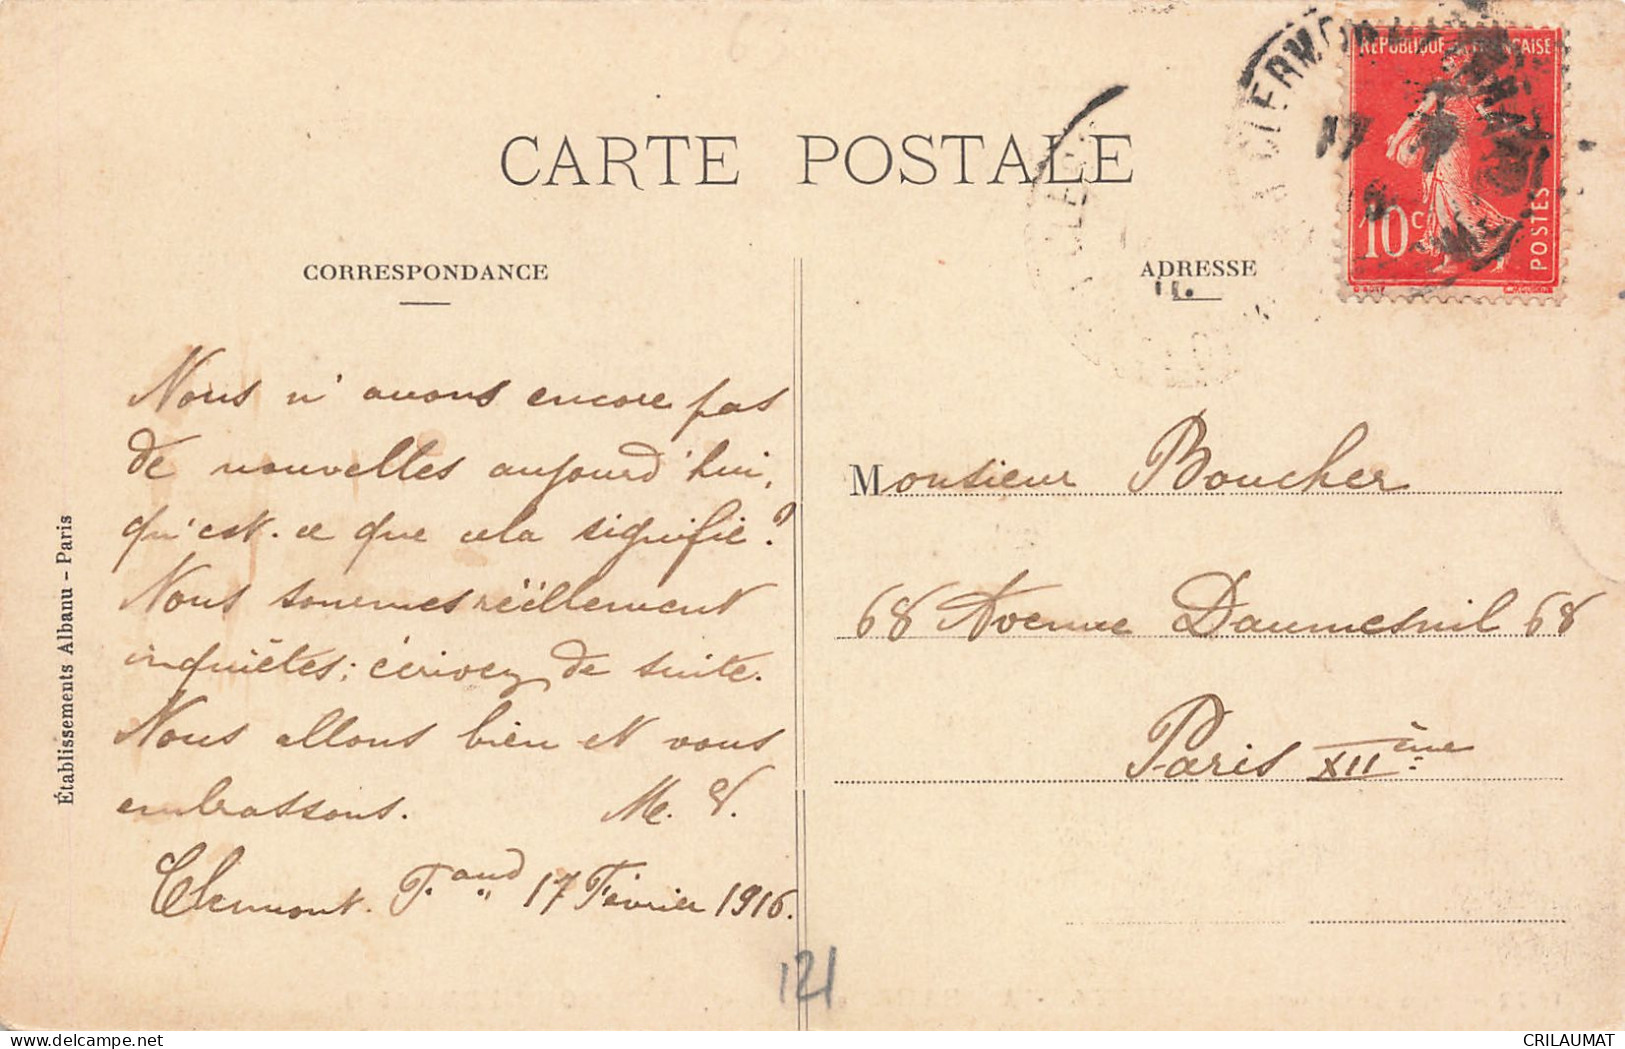 CARTE POSTALE
CORRESPONDANCE
Nous n'avons encore pas
de nouvelles aujourd'hui,
qu'est-ce que cela signifie?
Nous sommes réellement
inquiètes; écrivez de suite.
Nous allons bien et vous
embrassons. M. V.
Clermont. F.and 17 Février 1916.
Établissements Albanu - Paris
ADRESSE
Monsieur Boucher
68 Avenue Daumesnil 68
Paris XIIème
REPUBLIQUE FRANÇAISE
10c
POSTES
CLERMONT
17
121
CRILAUMAT